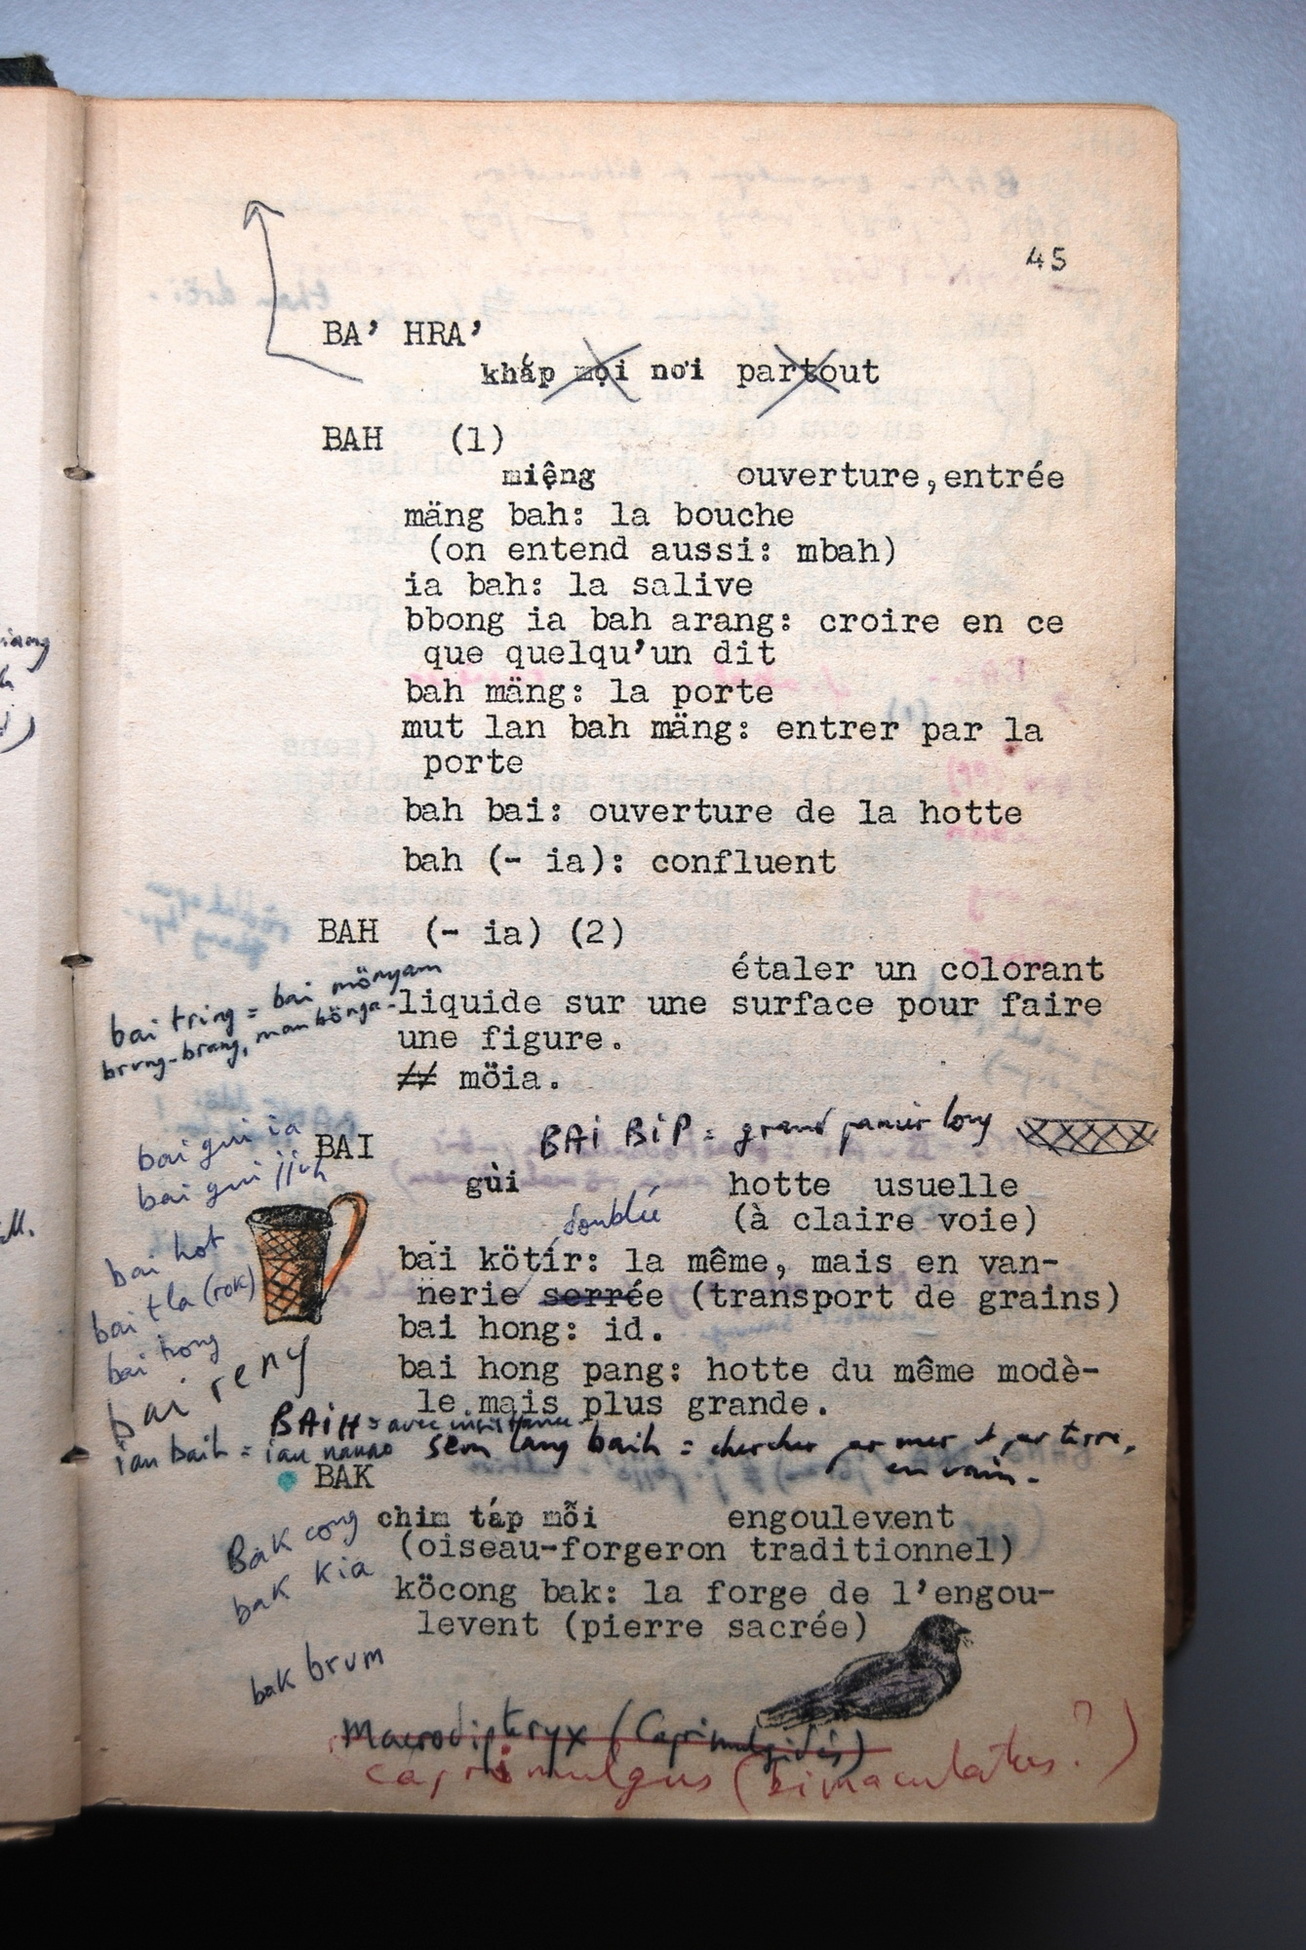 45
BA’ HRA’
khắp mọi nơi partout
BAH (1)
miệng ouverture,entrée
mäng bah: la bouche
(on entend aussi: mbah)
ia bah: la salive
bbong ia bah arang: croire en ce
que quelqu’un dit
bah mäng: la porte
mut lan bah mäng: entrer par la
porte
bah bai: ouverture de la hotte
bah (- ia): confluent
BAH (- ia) (2)
étaler un colorant
bai tring = bai mönyam
liquide sur une surface pour faire
brung-brang, man bönga-
une figure.
## möia.
BAI BIP = grand panier long
bai gui ia
BAI
bai gui jjuh
gùi hotte usuelle
doublée
(à claire voie)
bai hot
bai kötir: la même, mais en van-
bai tla (rok)
nerie serrée (transport de grains)
bai hong
bai hong: id.
bai reny
bai hong pang: hotte du même modè-
le mais plus grande.
BAIH = avec insistance
ian baih = iau nanao sem lang baih = chercher par mer et par terre,
en vain.
BAK
chim táp mỗi engoulevent
Bak cong
(oiseau-forgeron traditionnel)
bak kia
köcong bak: la forge de l’engou-
levent (pierre sacrée)
bak brum
Macrodipteryx (Caprimulgidés)
caprimulgus (bimaculatus?)